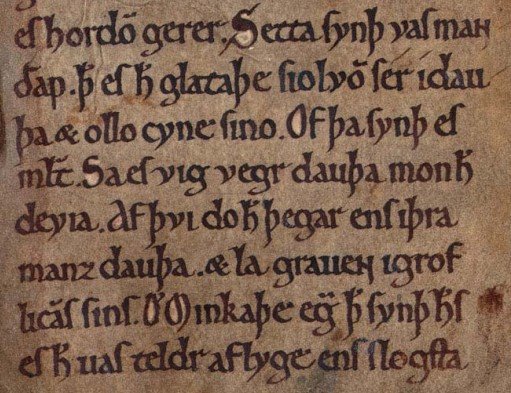 es hordō gerer. Setta ſynþ vaſ maɴ
dͬap. þ̄ es h̄ glataþe ſiolvō ſer idau
þa & ollo cyne ſino. Of þa ſynþ eſ
mꝉt. Sa eſ vig vegr dauþa mon h̄
deyia. Af þvi do h̄ þegar enſ iþra
manz dauþa. & la graueɴ igrof
licāſ ſinſ. Ō minkaþe eḡ þ̄ ſynþ h̄ſ
eſ h̄ uaſ teldr aflyge enſ ſløgſta